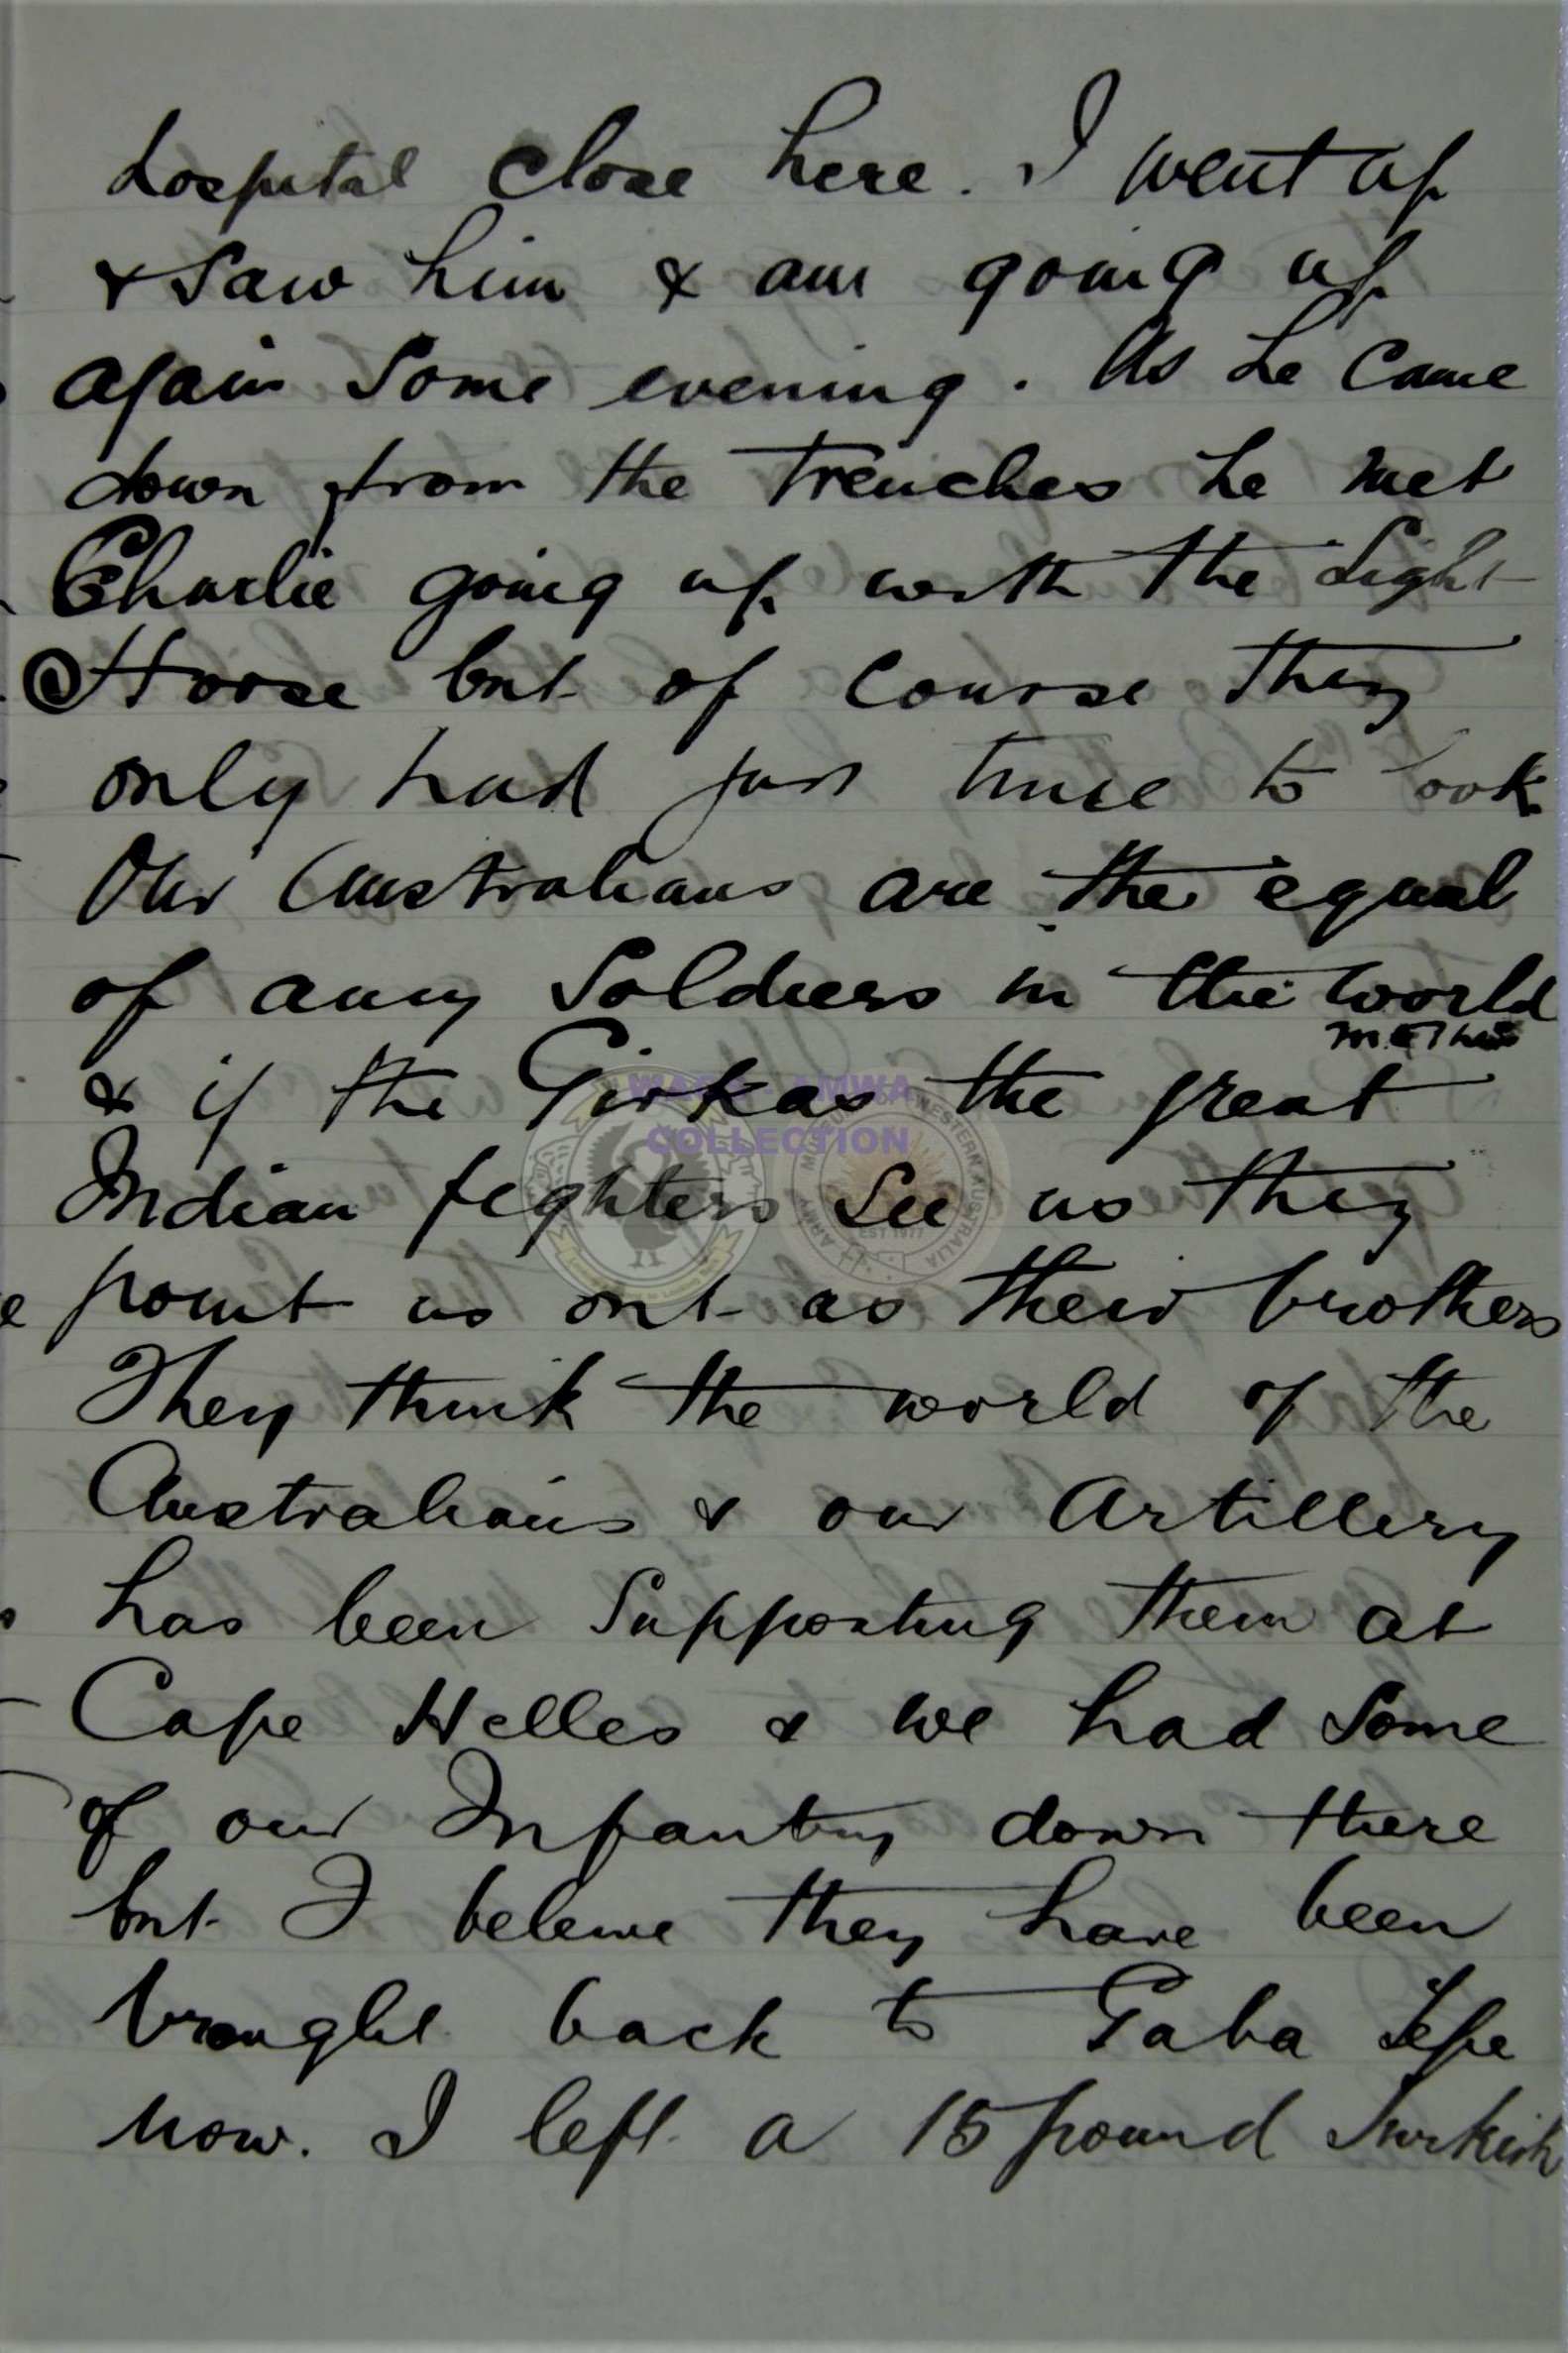 hospital close here. I went up
& saw him & am going up
again some evening. As he came
down from the trenches he met
Charlie going up with the Light
Horse but of course they
only had just time to look
Our Australians are the equal
of any soldiers in the world
& if the Girkas the great
Indian fighters see us they
point us out as their brothers
They think the world of the
Australians & our Artillery
has been supporting them at
Cape Helles & we had some
of our Infantry down there
but I beleive they have been
brought back to Gaba Tepe
now. I left a 15 pound Turkish
WAGS - AMWA
COLLECTION
ARMY MUSEUM OF WESTERN AUSTRALIA
EST. 1977